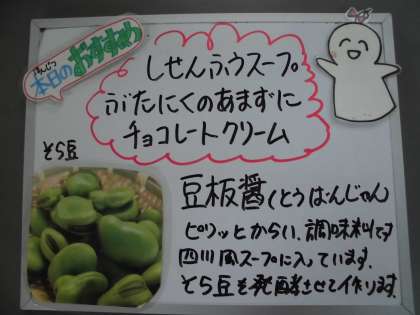 ほんじつ
本日のおすすめ
しせんふうスープ
ぶたにくのあまずに
チョコレートクリーム
そら豆
豆板醤(とうばんじゃん)
ピリッとからい、調味料です
四川風スープに入っています。
そら豆を発酵させて作ります。